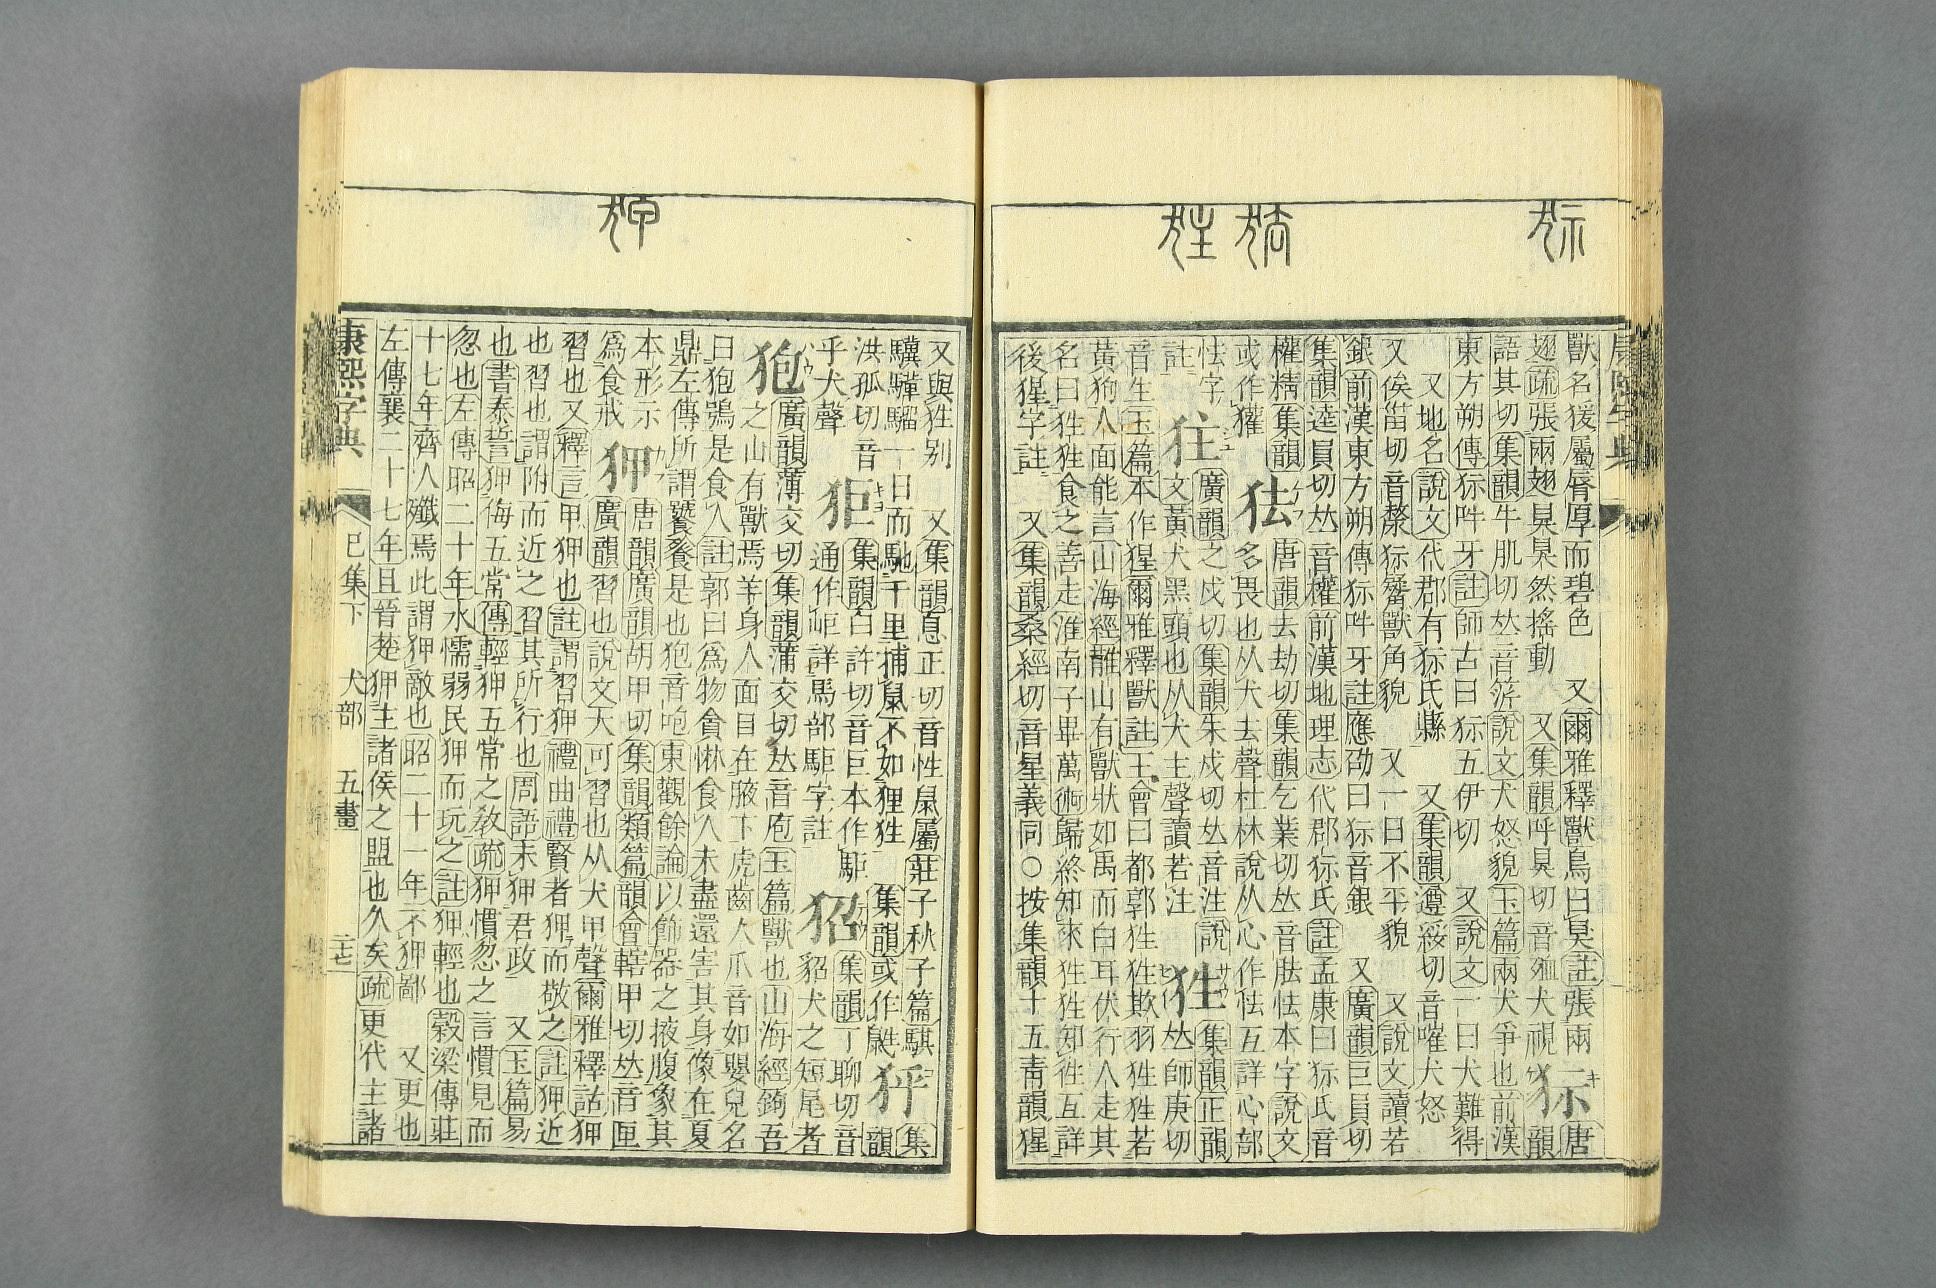 獸名猨屬脣厚而碧色　又爾雅釋獸鳥曰狊註張兩
翅疏張兩翅狊狊然搖動　又集韻呼狊切音殈犬視
狋
唐韻
語其切集韻牛肌切𠀤音䇵說文犬怒貌玉篇兩犬爭也前漢
東方朔傳狋吽牙註師古曰狋五伊切　又說文一曰犬難得
又地名說文代郡有狋氏縣　又集韻遵綏切音嗺犬怒
又俟甾切音漦狋觺獸角貌　又一曰不平貌　又說文讀若
銀前漢東方朔傳狋吽牙註應劭曰狋音銀　又廣韻巨員切
集韻逵員切𠀤音權前漢地理志代郡狋氏註孟康曰狋氏音
權精集韻
或作獾
狜
唐韻去劫切集韻乞業切𠀤音胠怯本字說文
多畏也从犬去聲杜林說从心作怯互詳心部
怯字
註
狌
廣韻之戍切集韻朱戍切𠀤音注說
文黃犬黑頭也从犬主聲讀若注
狌
集韻正韻
𠀤師庚切
音生玉篇本作猩爾雅釋獸註王會曰都郭狌狌欺羽狌狌若
黃狗人面能言山海經䧿山有獸狀如禺而白耳伏行人走其
名曰狌狌食之善走淮南子畢萬術歸終知來狌狌知往互詳
後猩字註　又集韻桑經切音星義同○按集韻十五靑韻猩
又與狌別　又集韻息正切音性鼠屬莊子秋子篇騏
驥驊騮一日而馳千里捕鼠不如狸狌　集韻或作鼪
狉
集
韻
洪孤切音
乎犬聲
狚
集韻臼許切音巨本作駏
通作岠詳馬部駏字註
狣
集韻丁聊切音
貂犬之短尾者
狍
廣韻薄交切集韻蒲交切𠀤音庖玉篇獸也山海經鉤吾
之山有獸焉羊身人面目在腋下虎齒人爪音如嬰兒名
曰狍鴞是食人註郭曰爲物貪惏食人未盡還害其身像在夏
鼎左傳所謂饕餮是也狍音咆東觀餘論以飾器之掖腹象其
本形示
爲食戒
狎
唐韻廣韻胡甲切集韻類篇韻會轄甲切𠀤音匣
廣韻習也說文犬可習也从犬甲聲爾雅釋詁狎
習也又釋言甲狎也註謂習狎禮曲禮賢者狎而敬之註狎近
也習也謂附而近之習其所行也周語未狎君政　又玉篇易
也書泰誓狎侮五常傳輕狎五常之敎疏狎慣忽之言慣見而
忽也左傳昭二十年水懦弱民狎而玩之註狎輕也穀梁傳莊
十七年齊人殲焉此謂狎敵也昭二十一年不狎鄙　又更也
左傳襄二十七年且晉楚狎主諸侯之盟也久矣疏更代主諸
康熙字典　巳集下　犬部　五畫　二七